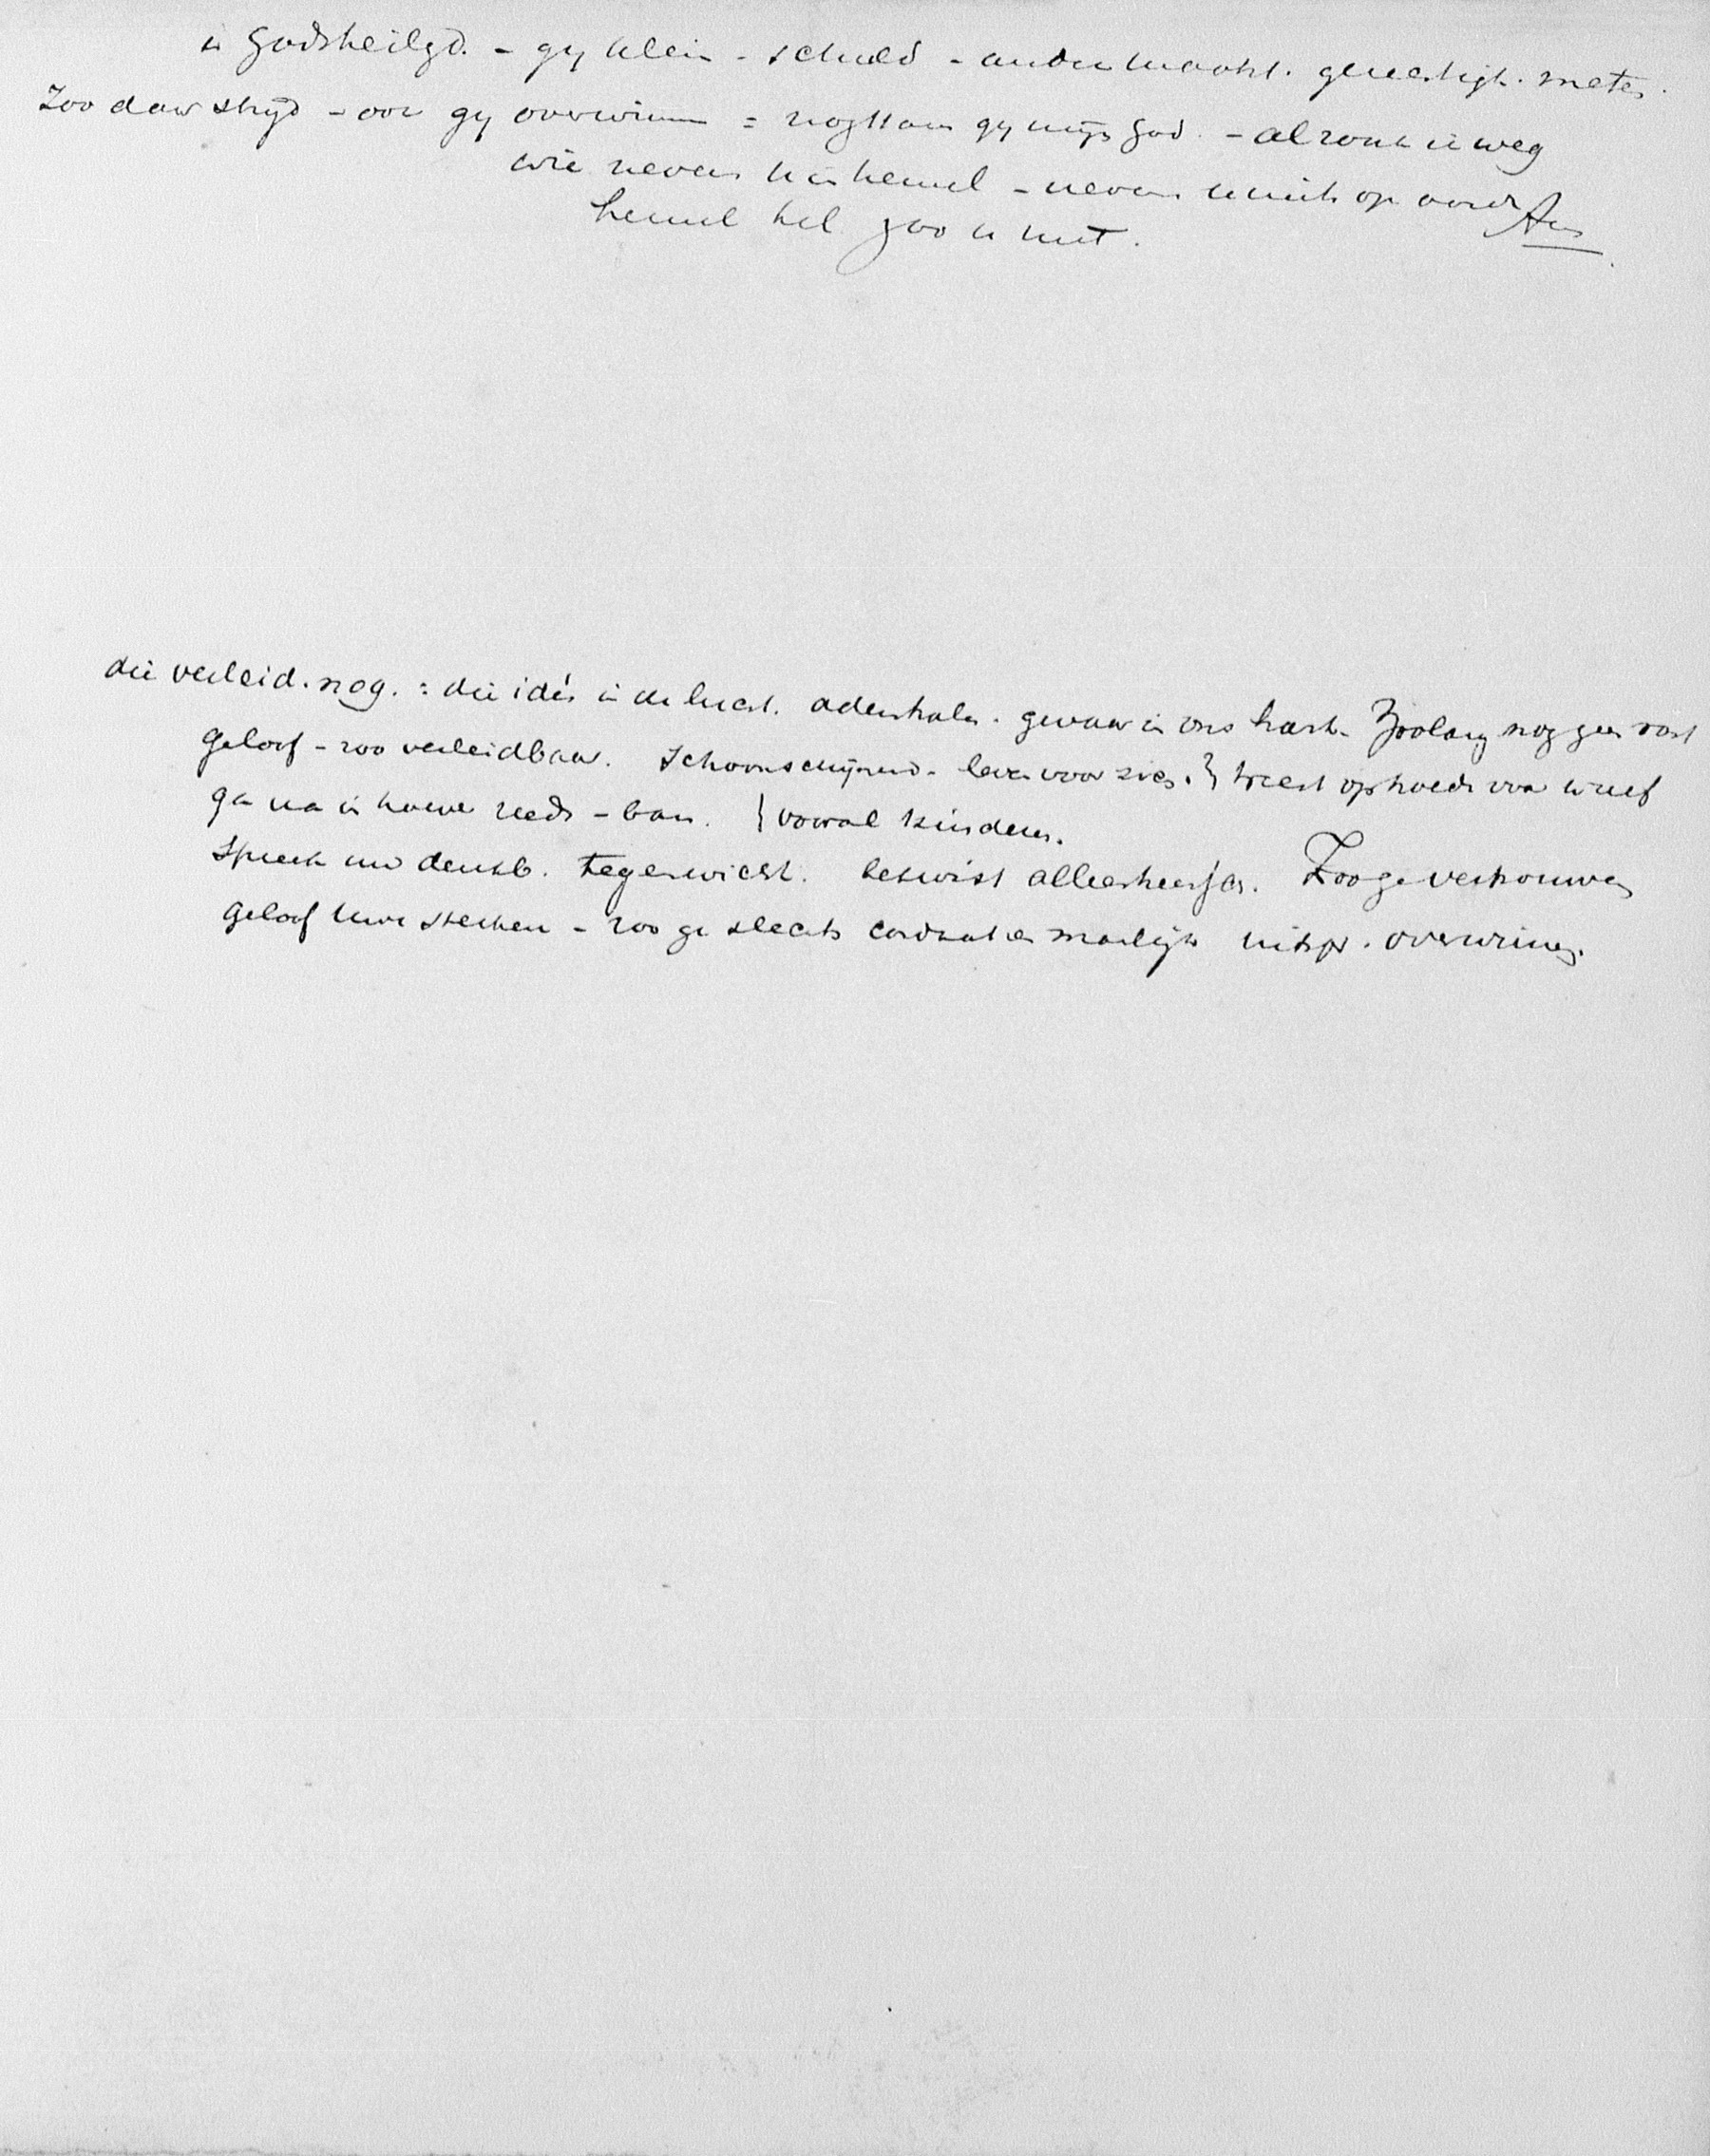 in Godsheiligd. - gy klein - schuld - ander maakt. gerechtigh. meten.
Zoo daar stryd - ook gy overwinn = nogtans gy mijn God. - al zonk ik weg
wie nevens u in hemel - nevens u niets op aarde
hemel hel zoo u niet. Am
die verleid. nog. : die ideën in de lucht. ademhalen. gevaar in ons hart. Zoolang nog geen vast
geloof - zoo verleidbaar. Schoonschijnend - leven voor zich. } weest ophoede voor
ga na in hoeve reeds - ban. } vooral kinderen.
Spreek uw denkb. tegenwicht. betwist alleenheersch. Zoo ge vertrouwen
geloof uwe sterken - zoo ge slechts cordaat en manlijk uitspr. overwinnen.